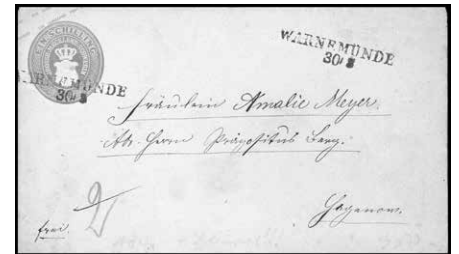 EIN SCHILLING
WARNEMÜNDE
30/8
WARNEMÜNDE
30/8
Fräulein Amalie Meyer.
Adr. Herrn Präpositus Berg.
Hagenow.
frei.